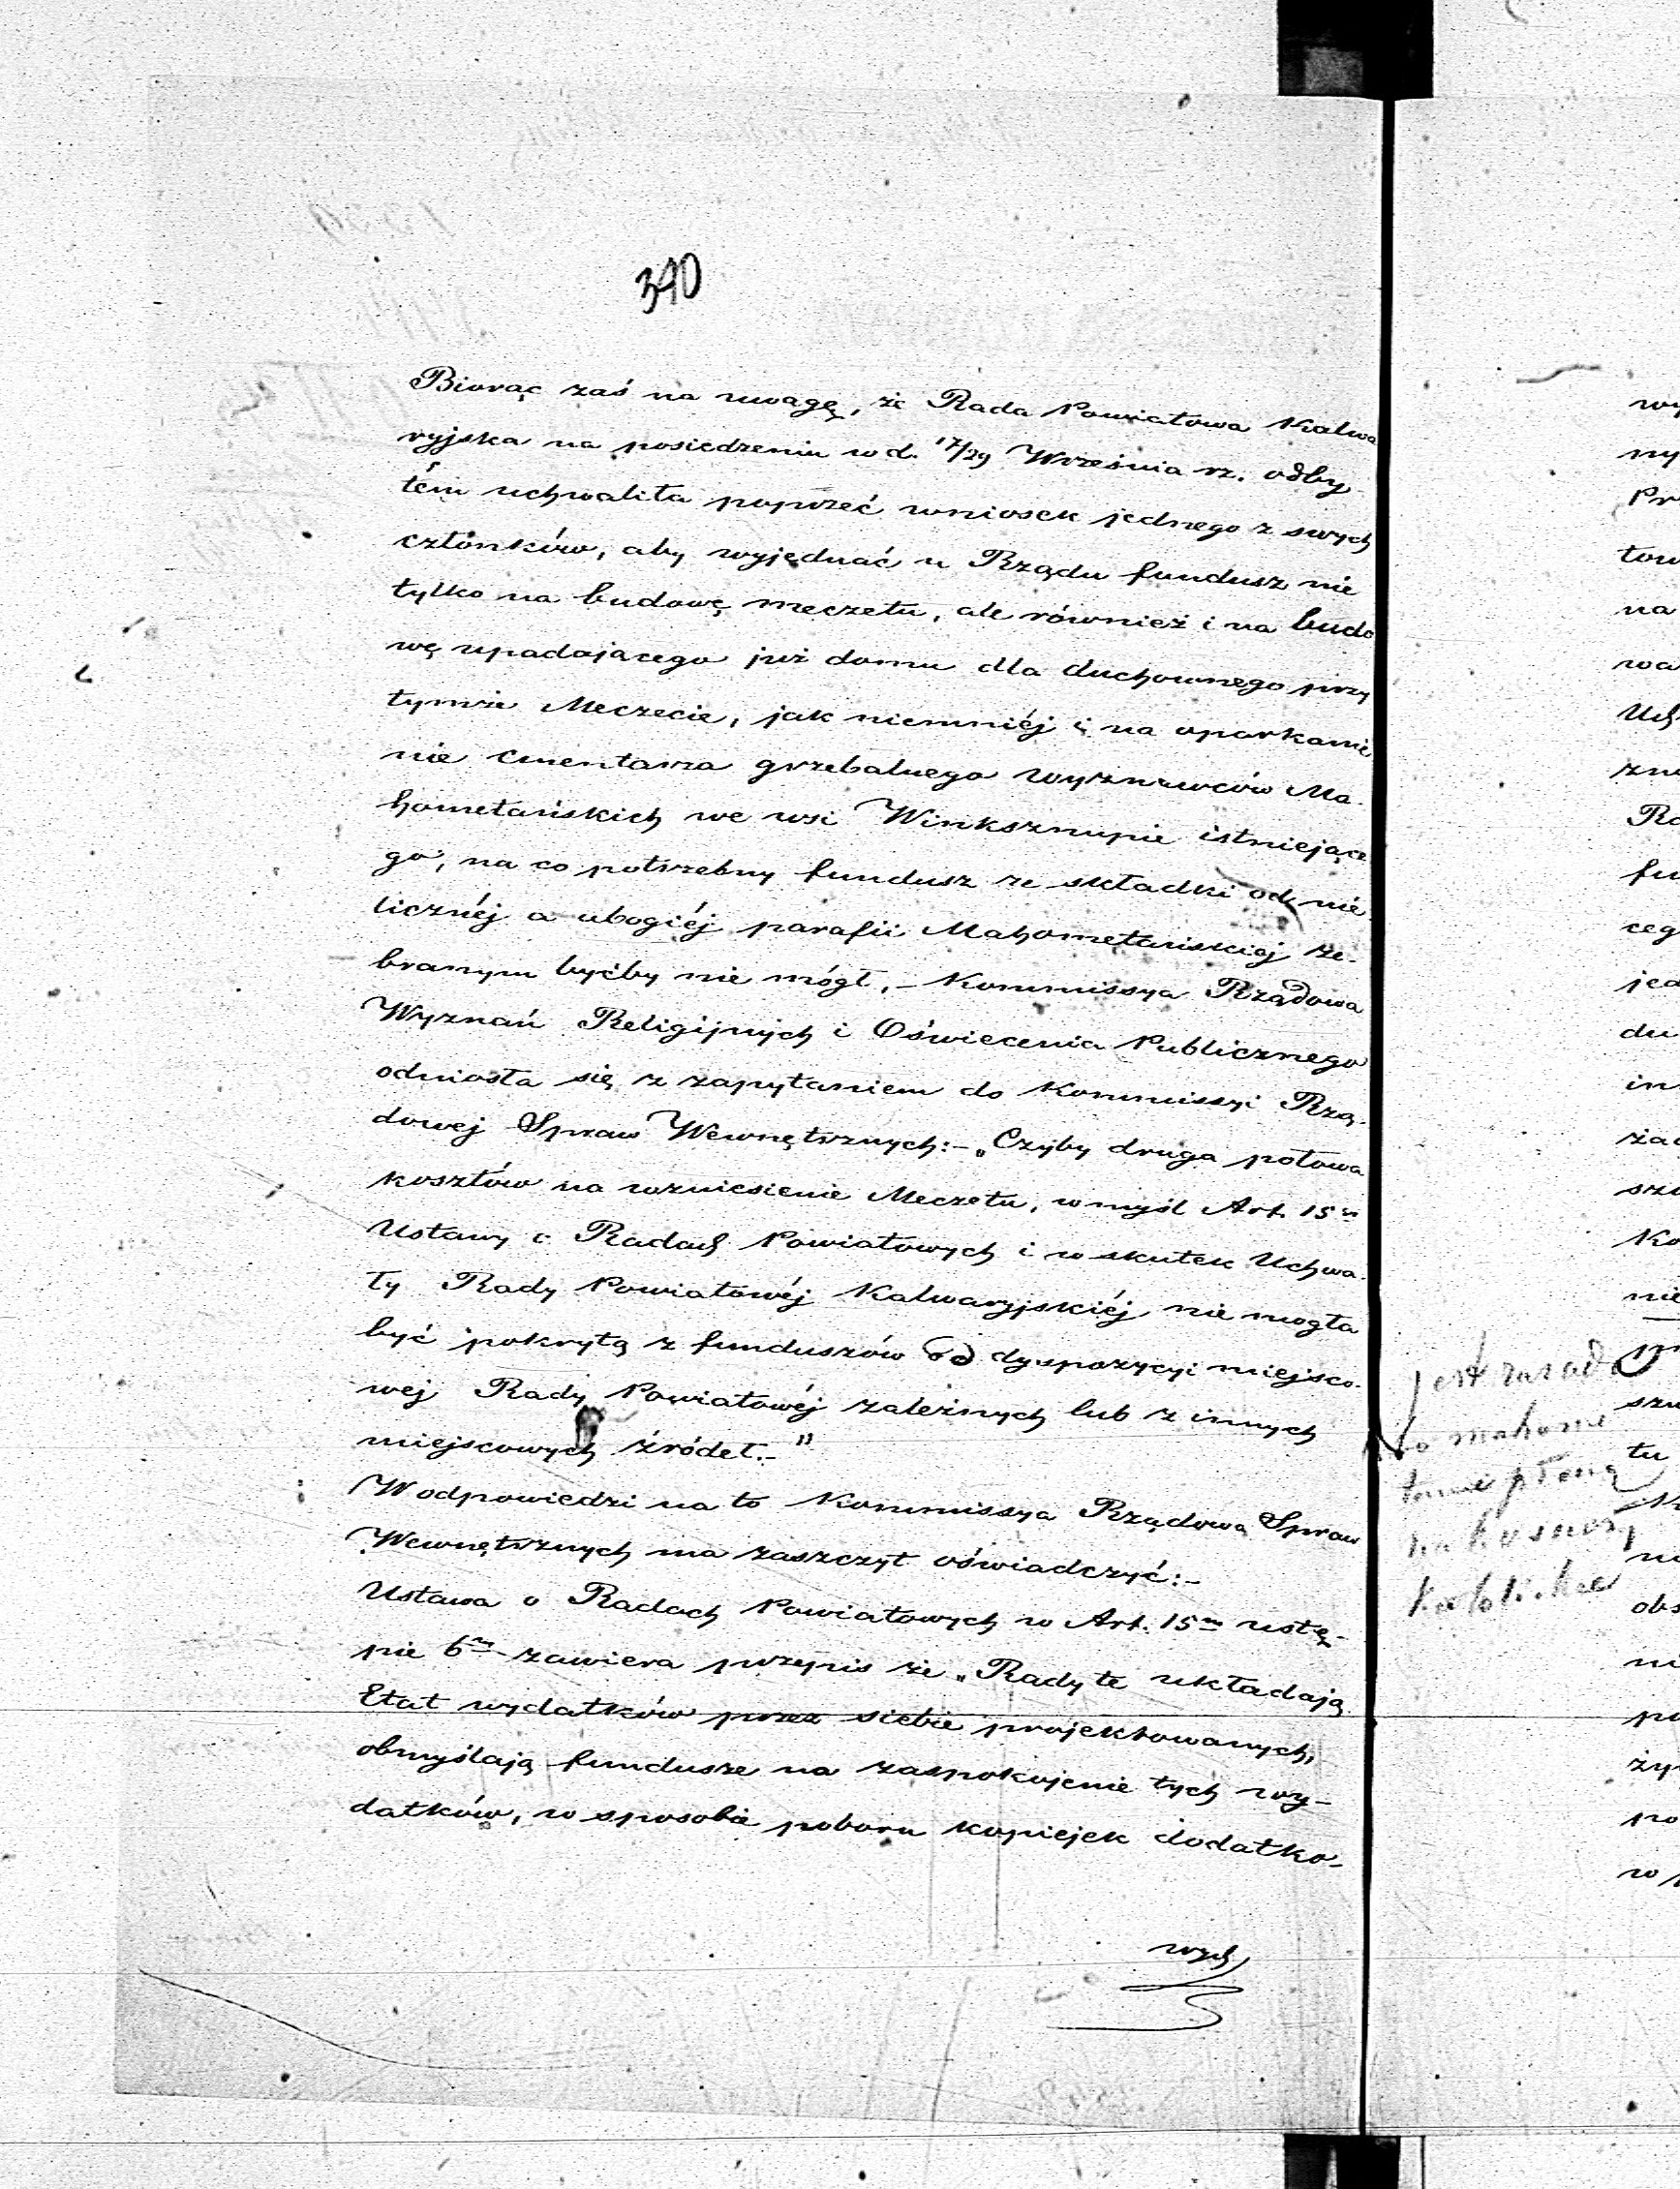 390
Biorąc zaś na uwagę, że Rada Powiatowa Kalwa
ryjska na posiedzeniu w d. 17/29 Września rz. odby-
tém uchwaliła poprzeć wniosek jednego z swych
członków, aby wyjednać u Rządu fundusz nie
tylko na budowę meczetu, ale również i na budo
wę upadającego już domu dla duchownego przy
tymże Meczecie, jak niemniéj i na oparkanie
nie cmentarza grzebalnego wyznawców Ma-
hometańskich we wsi Winksznupie istniejące
go, na co potrzebny fundusz ze składki od nie
licznéj a ubogiéj parafii Mahometańskiej ze-
branym byćby nie mógł, - Kommissya Rządowa
Wyznań Religijnych i Oświecenia Publicznego
odniosła się z zapytaniem do Kommissyi Rzą-
dowej Spraw Wewnętrznych:- „Czyby druga połowa
kosztów na wzniesienie Meczetu, w myśl Art. 15go
Ustawy o Radach Powiatowych i w skutek Uchwa-
ły Rady Powiatowéj Kalwaryjskiéj nie mogła
być pokrytą z funduszów od dyspozycyi miejsco-
wej Rady Powiatowéj zależnych lub z innych
miejscowych źródeł.-"
W odpowiedzi na to Kommissya Rządowa Spraw
Wewnętrznych ma zaszczyt oświadczyć:-
Ustawa o Radach Powiatowych w Art. 15m ustę-
pie 6m zawiera przepis że „Rady te układają
Etat wydatków przez siebie projektowanych,
obmyślają fundusze na zaspokojenie tych wy-
datków, w sposobie poboru kopiejek dodatko-
wych
Jest zasada
to mahome
tanie płacą
na koscioły
katolickie